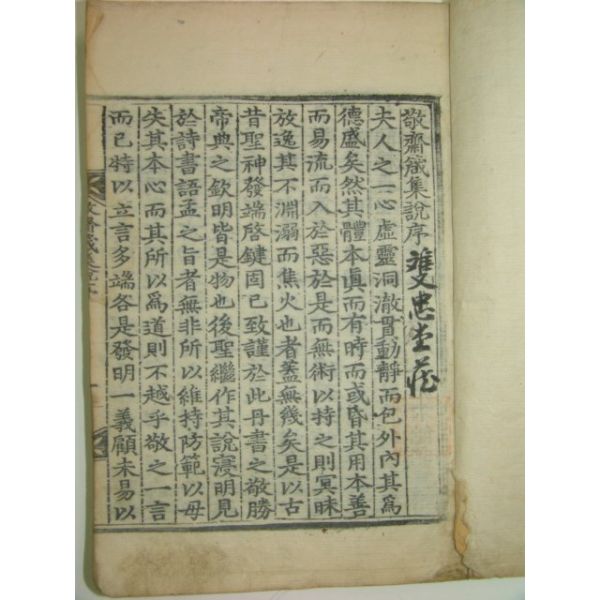 敬齋箴集說序
雙忠堂藏
夫人之一心虛靈洞澈貫動靜而包外內其爲
德盛矣然其體本眞而有時而或昏其用本善
而易流而入於惡於是而無術以持之則冥昧
放逸其不淵溺而焦火也者蓋無幾矣是以古
昔聖神發端啓鍵固已致謹於此丹書之敬勝
帝典之欽明皆是物也後聖繼作其說寖明見
於詩書語孟之旨者無非所以維持防範以毋
失其本心而其所以爲道則不越乎敬之一言
而已特以立言多端各是發明一義顧未易以
敬齋箴集說序